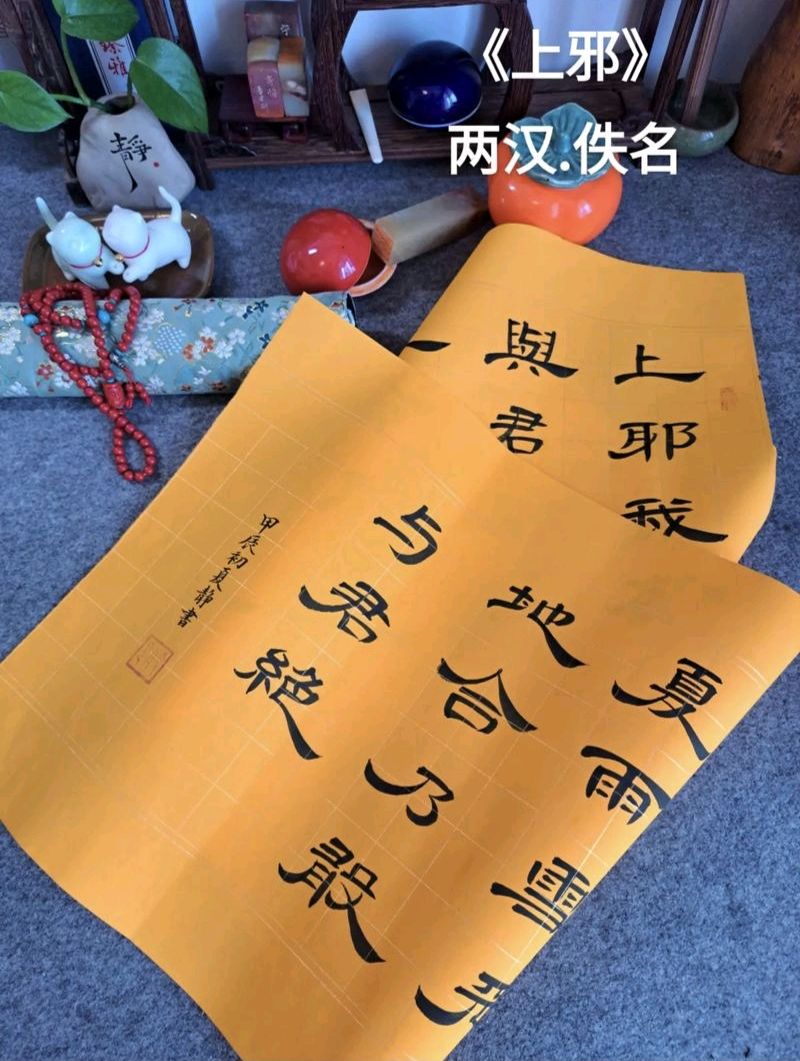 《上邪》
两汉.佚名
靜
上耶我
與君
夏雨雪
地合乃敢
与君絕
甲辰初夏靜書